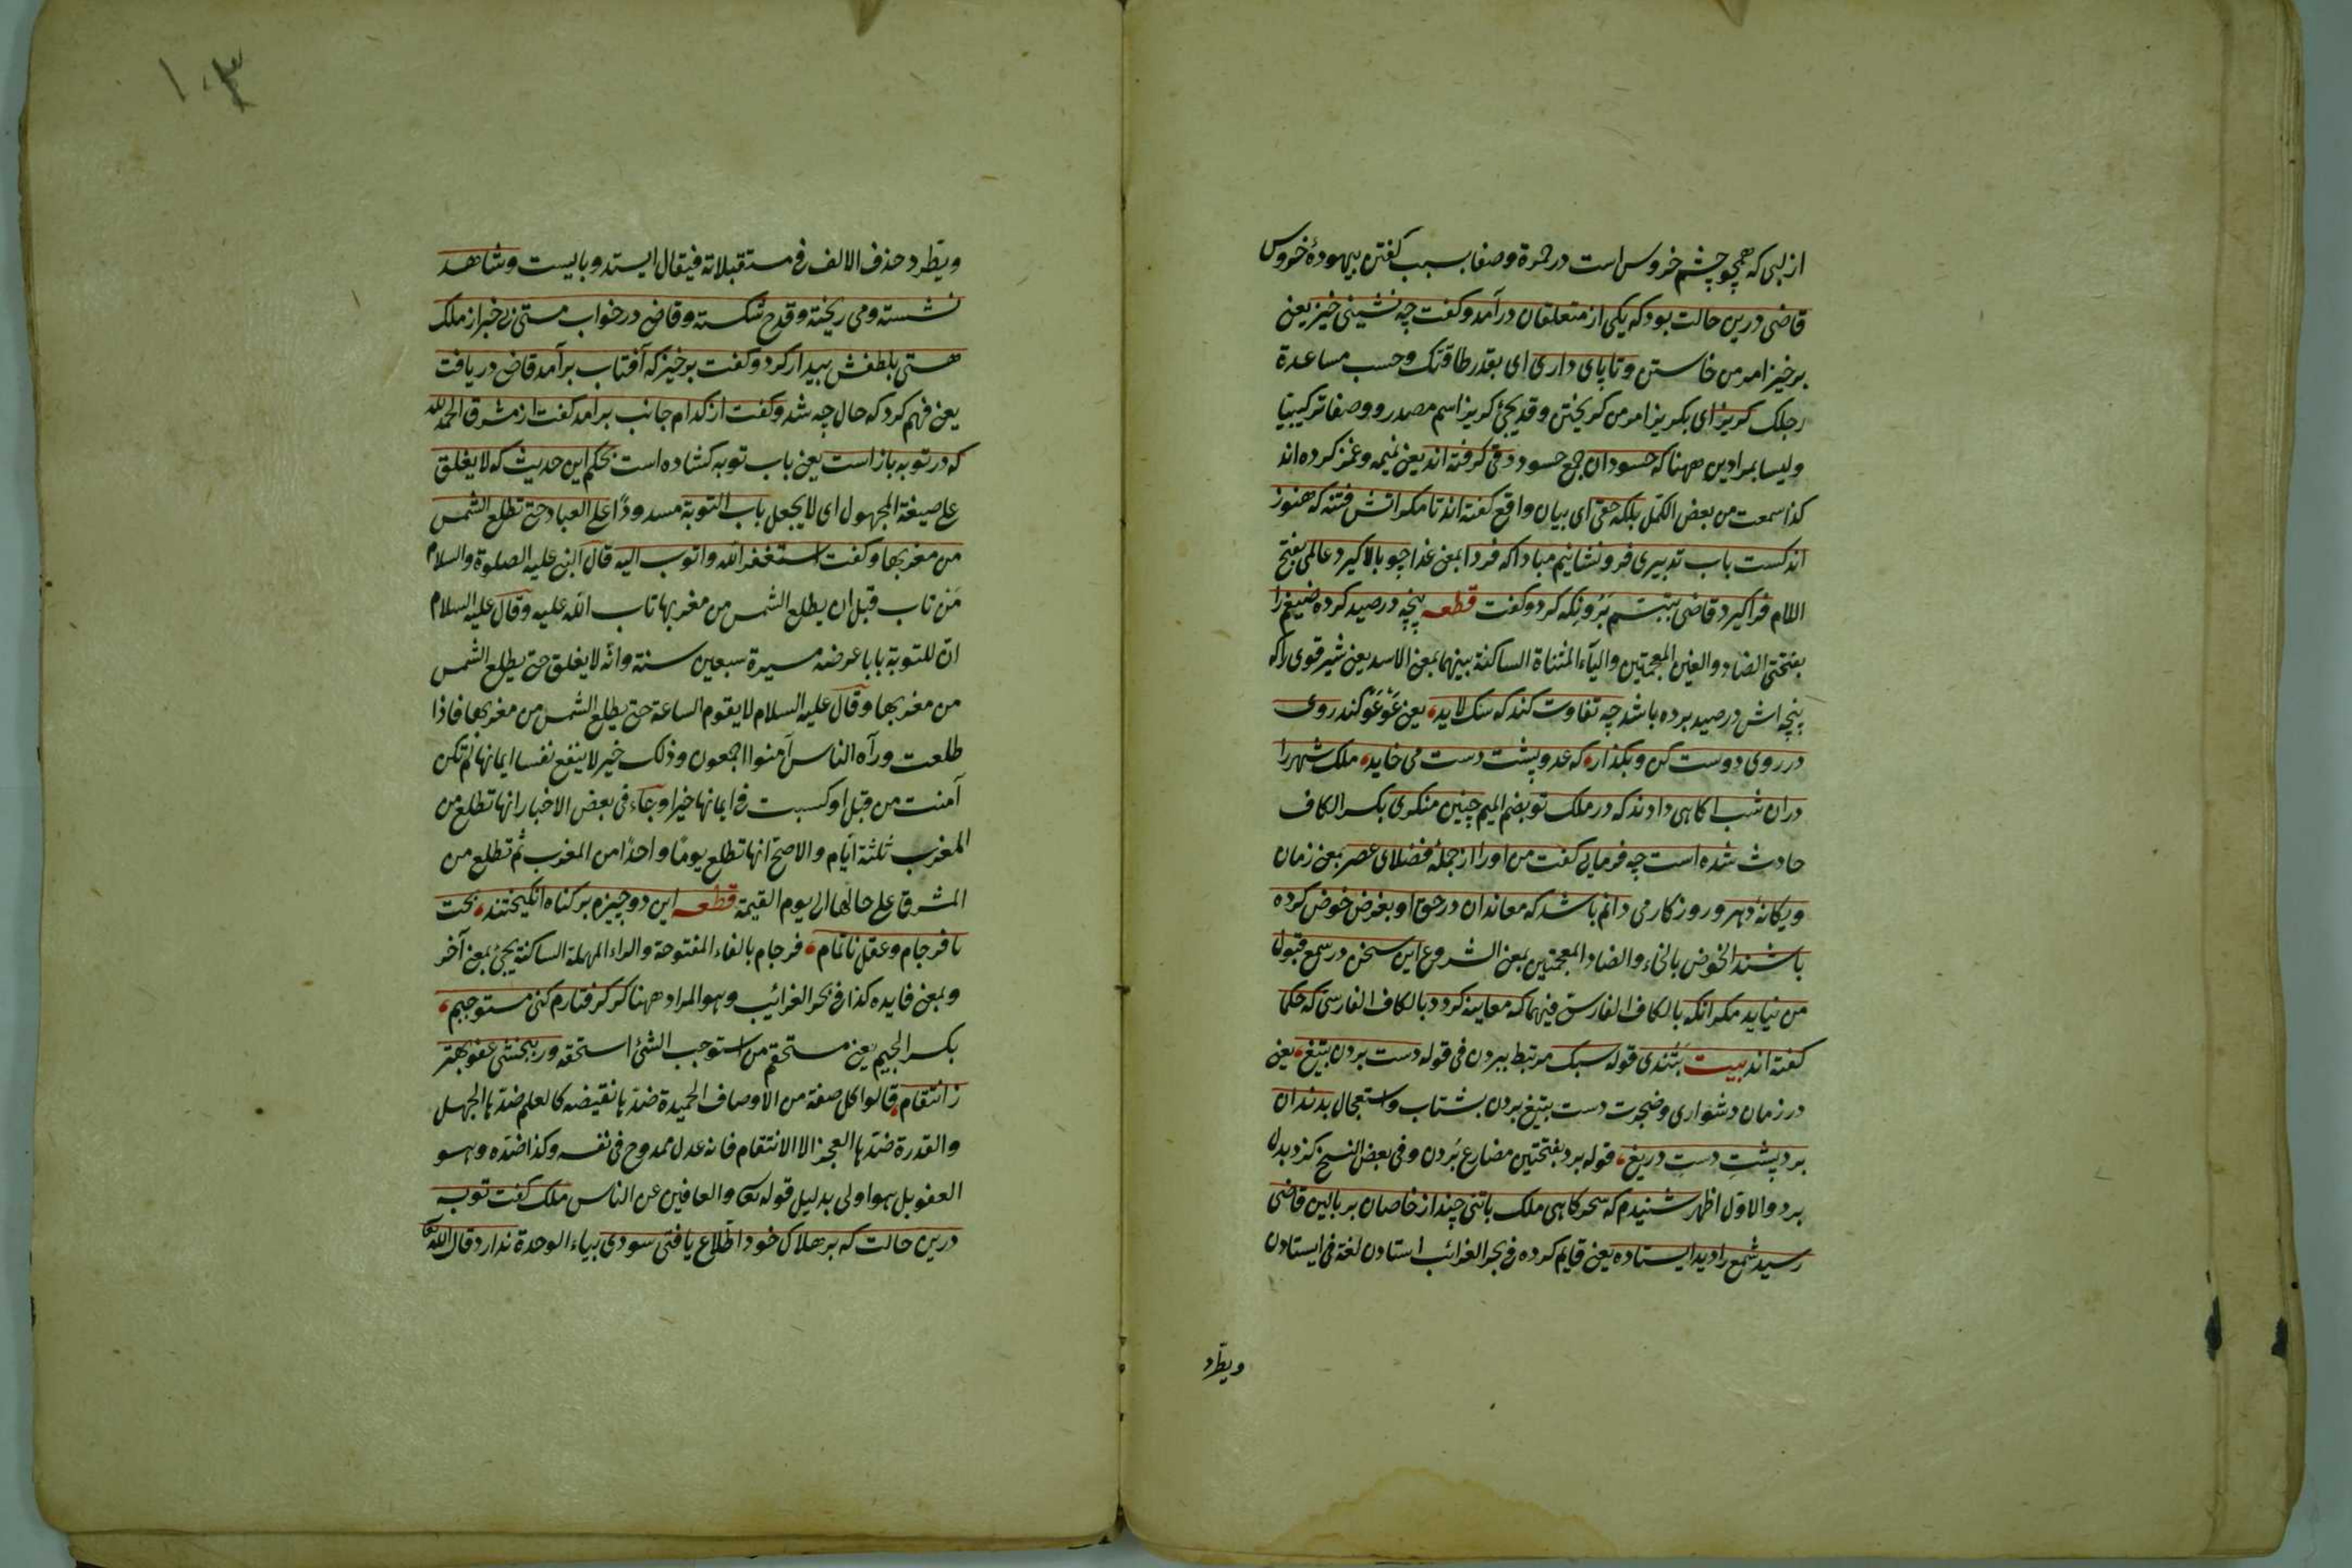 از لبی که همچو چشم خروس است در حمرة وصفا بسبب کفتن بیهودهٔ خروس
قاضی درین حالت بود که یکی از متعلقان درآمد و کفت چه نشینی خیز یعنی
برخیز امر من خاستن و تا پای داری ای بقدر طاقتک وحسب مساعدة
رجلک کریز ای بکریز امر من کریختن وقد یجئ کریز اسم مصدر ووصفا ترکیبیا
ولیسا بمرادین ههنا که حسودان جمع حسود دقی کرفته اند یعنی نمیمه وغمز کرده اند
کذا سمعت من بعض الکمّل بلکه حقی ای بیان واقع کفته اند تا مکر اتش فتنه که هنوز
اندکست باب تدبیری فرو نشانیم مبادا که فردا بمعنی غدا چو بالا کیرد عالمی بفتح
اللام فراکیرد قاضی بتبسّم بَرُو نکه کرد وکفت قطعه پنچه در صید کرده ضیغم را
بفتحتی الضاد والغین المعجمتین والیآء المثناة الساکنة بینهما بمعنی الاسد یعنی شیر قوی را که
پنچه اش در صید برده باشد چه تفاوت کند که سک لاید، یعنی عَوْعَوْ کند روی
در روی دوست کن وبکذار، که عدو پشت دست می خاید، ملک شهر را
دران شب اکاهی دادند که در ملک تو بضم المیم چنین منکری بکسر الکاف
حادث شده است چه فرمایی کفت من اورا از جملهٔ فضلای عصر بمعنی زمان
ویکانهٔ دهر وروزکار می دانم باشد که معاندان در حق او بغرض خوض کرده
باشند الخوض بالخاء والضاد المعجمتین بمعنی الشروع این سخن در سمع قبول
من نیاید مکر انکه بالکاف الفارسیّ فیهما که معاینه کردد بالکاف الفارسی که حکما
کفته اند بیت بتندی قوله سبک مرتبط ببردن فی قوله دست بردن بتیغ، یعنی
در زمان دشواری وضجرت دست بتیغ بردن بشتاب واستعجال بدندان
برد پشتِ دستِ دریغ، قوله برد بفتحتین مضارع بُردن وفی بعض النسخ کزد بدل
برد والاوّل اظهر شنیدم که سحرکاهی ملک باتنی چند از خاصان بر بالین قاضی
رسید شمع را دید ایستاده یعنی قایم کرده فی بحر الغرائب استادن لغة فی ایستادن
ویطرد
۱۰۳
ویطّرد حذف الالف فی مستقبلاته فیقال ایستد وبایست وشاهد
نشسته ومی ریخته وقدح شکسته وقاضی در خواب مستی بی خبر از ملک
هستی بلطفش بیدار کرد وکفت برخیز که آفتاب برآمد قاضی دریافت
یعنی فهم کرد که حال چه شد وکفت از کدام جانب برآمد کفت از مشرق الحمد لله
که در توبه باز است یعنی باب توبه کشاده است بحکم این حدیث که لا یغلق
علی صیغة المجهول ای لا یجعل باب التوبة مسدودًا علی العباد حتی تطلع الشمس
من مغربها وکفت استغفر الله واتوب الیه قال النبی علیه الصلوة والسلام
مَن تاب قبل ان یطلع الشمس من مغربها تاب الله علیه وقال علیه السلام
انّ للتوبة بابا عرضه مسیرة سبعین سنة وانّه لا یغلق حتی یطلع الشمس
من مغربها وقال علیه السلام لا یقوم الساعة حتی یطلع الشمس من مغربها فاذا
طلعت ورآه الناس آمنوا اجمعون وذلک خیر لا ینفع نفسا ایمانها لم تکن
آمنت من قبل او کسبت فی ایمانها خیرا وجآء فی بعض الاخبار انها تطلع من
المغرب ثلثة ایّام والاصحّ انها تطلع یومًا واحدًا من المغرب ثم تطلع من
المشرق علی حالها الی یوم القیمة قطعه این دو چیزم بر کناه انکیختند، بخت
نافرجام وعقل ناتمام، فرجام بالفاء المفتوحة والراء المهملة الساکنة یجئ بمعنی آخر
وبمعنی فایده کذا فی بحر الغرائب وهو المراد ههنا کر کرفتارم کنی مستوجبم،
بکسر الجیم یعنی مستحقم من استوجب الشئ استحقه ور ببخشی عفو بهتر
ز انتقام، قالوا کل صفة من الاوصاف الحمیدة ضدّها نقیضه کالعلم ضدّها الجهل
والقدرة ضدّها العجز الا الانتقام فانه عدل ممدوح فی نفسه وکذا ضدّه وهو
العفو بل هو اولی بدلیل قوله تع والعافین عن الناس ملک کفت توبه
درین حالت که بر هلاک خود اطّلاع یافتی سودی بیاء الوحدة ندارد قال الله تع